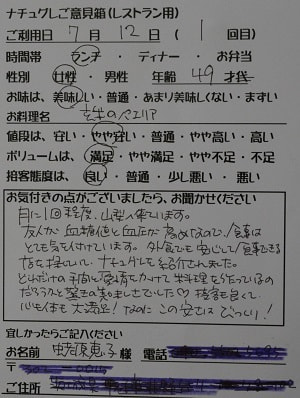 ナチュグしご意見箱(レストラン用)
ご利用日 7月 12日 ( 1 回目)
時間帯 ランチ ・ ディナー ・ お弁当
性別 女性 ・ 男性 年齢 49 才代
お味は、美味しい・普通・あまり美味しくない・まずい
お料理名 玄米のパエリア
値段は、安い・やや安い・普通・やや高い・高い
ボリュームは、満足・やや満足・やや不足・不足
接客態度は、良い・普通・少し悪い・悪い
お気付きの点がございましたら、お聞かせください
月に1回程度、山梨へ来ています。
友人が血糖値と血圧が高めなので、食事は
とても気を付けています。外食でも安心して食事できる
店を探していて、ナチュグしを紹介されました。
どれだけの手間と愛情をかけてお料理を作っているの
だろうかと驚きの知りませでした♡ 接客も良くて、
心も体も大満足! なのにこの安さはビックリ!
宜しかったらご記入ください
お名前 恵子 様 電話
〒
ご住所